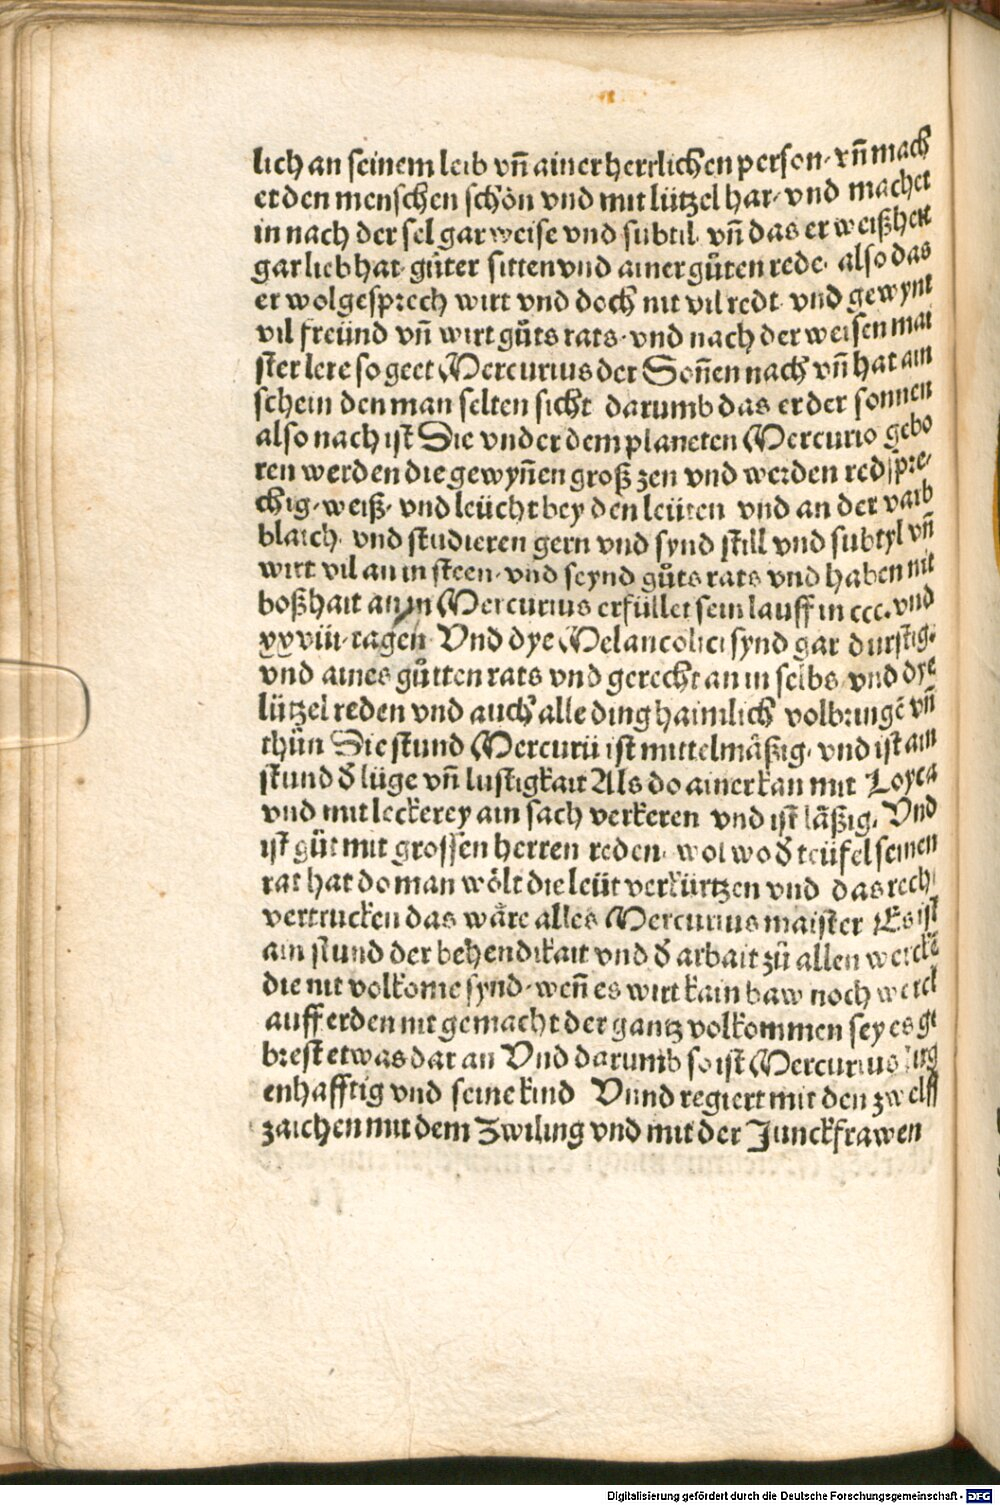 lich an seinem leib vn̄ ainer herrlichen person· vn̄ mach
et den menschen schön vnd mit lützel har· vnd machet
in nach der sel gar weise vnd subtil· vn̄ das er weißheit
gar lieb hat· gůter sitten vnd ainer gůten rede· also das
er wolgesprech wirt vnd doch nit vil redt· vnd gewynt
vil freünd vn̄ wirt gůts rats· vnd nach der weisen mai
ster lere so geet Mercurius der Son̄en nach vn̄ hat ain
schein den man selten sicht darumb das er der sonnen
also nach ist Die vnder dem planeten Mercurio gebo
ren werden die gewyn̄en groß zen vnd werden redspre⸗
chig· weiß· vnd leücht bey den leüten vnd an der varb
blaich· vnd studieren gern vnd synd still vnd subtyl vn̄
wirt vil an in steen· vnd seynd gůts rats vnd haben nit
boßhait an in Mercurius erfüllet sein lauff in ccc. vnd
xxviii· tagen· Vnd dye Melancolici synd gar durstig·
vnd aines gůtten rats vnd gerecht an in selbs· vnd dye
lützel reden vnd auch alle ding haimlich volbringē vn̄
thůn Die stund Mercurii ist mittelmäßig· vnd ist ain
stund d̄ lüge vn̄ lustigkait Als do ainer kan mit Loyca
vnd mit leckerey ain sach verkeren vnd ist läßig· Vnd
ist gůt mit grossen herren reden· wol wo d̄ teüfel seinen
rat hat do man wölt die leüt verkürtzen vnd das rech
vertrucken das wäre alles Mercurius maister Es ist
ain stund der behendikait vnd d̄ arbait zů allen werckē
die nit volkome synd· wen̄ es wirt kain baw noch werck
auff erden nit gemacht der gantz volkommen sey es ge
brest etwas dar an Vnd darumb so ist Mercurius lug
enhafftig vnd seine kind Vnnd regiert mit den zwelff
zaichen mit dem Zwiling vnd mit der Junckfrawen
Digitalisierung gefördert durch die Deutsche Forschungsgemeinschaft - DFG